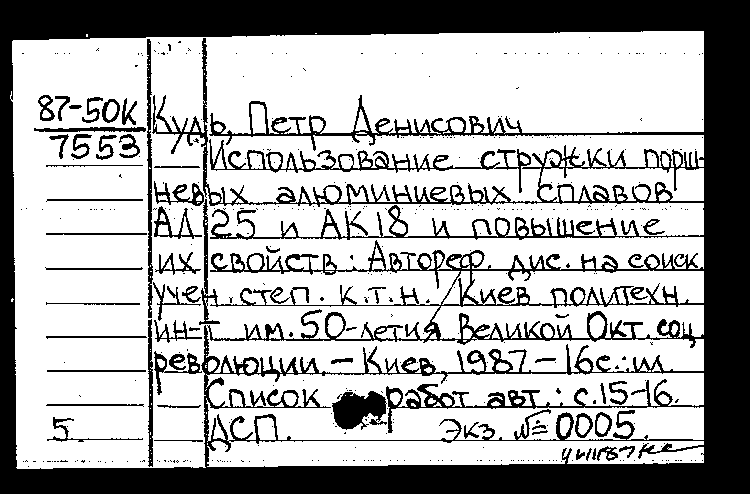 87-50К
7553
Кудь, Петр Денисович
Использование стружки порш-
невых алюминиевых сплавов
АЛ 25 и АК18 и повышение
их свойств: Автореф. дис. на соиск.
учен. степ. к.т.н. / Киев политехн.
ин-т им. 50-летия Великой Окт. соц.
революции. – Киев, 1987 – 16с.: ил.
Список работ авт.: с.15-16.
5. ДСП. Экз. №0005.